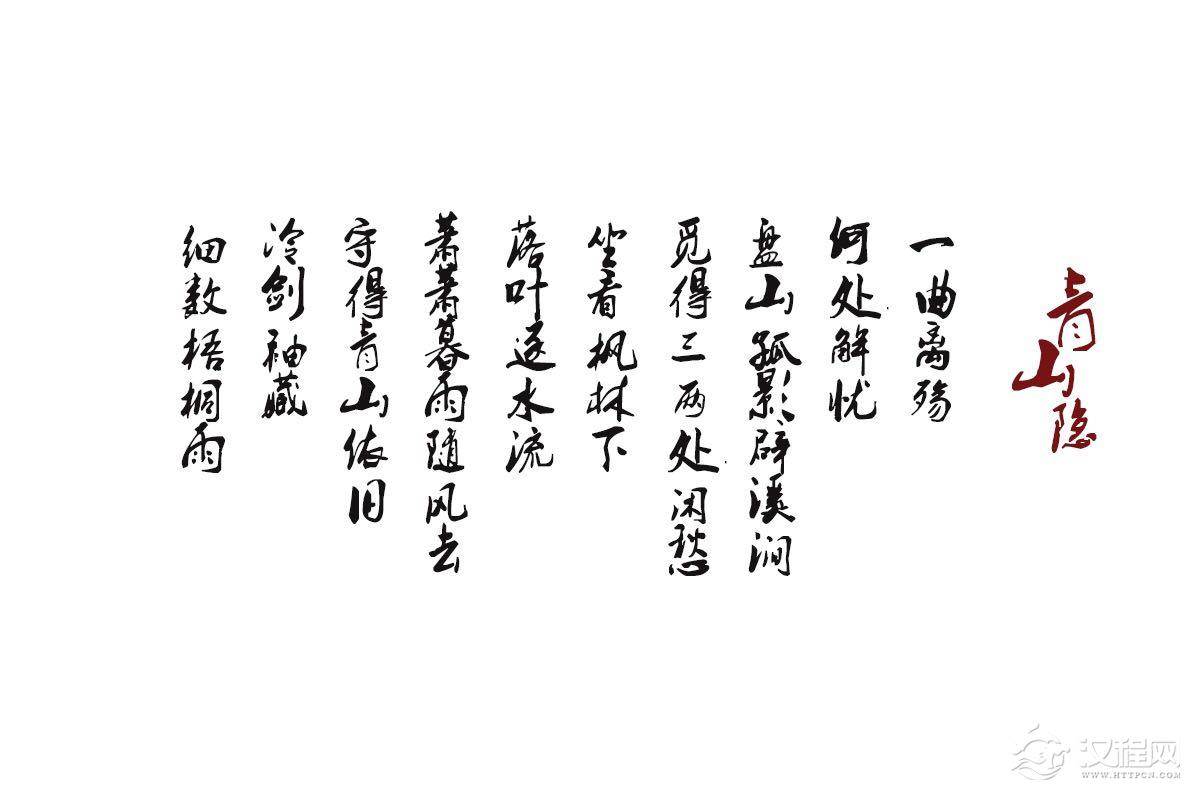 青山隐
一曲离殇
何处解忧
盘山孤影辟溪涧
觅得三两处闲愁
坐看枫林下
落叶逐水流
萧萧暮雨随风去
守得青山依旧
冷剑袖藏
细数梧桐雨
汉程网
WWW.HTTPCN.COM